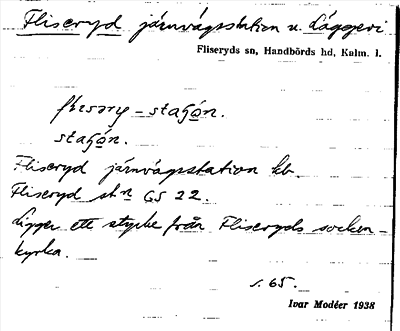 Fliseryd järnvägsstation u. Läggevi
Fliseryds sn, Handbörds hd, Kalm. l.
flisəry - staʃón.
staʃón.
Fliseryd järnvägsstation kb.
Fliseryd stn GS 22.
Ligger ett stycke från Fliseryds socken-
kyrka.
s. 65.
Ivar Modéer 1938